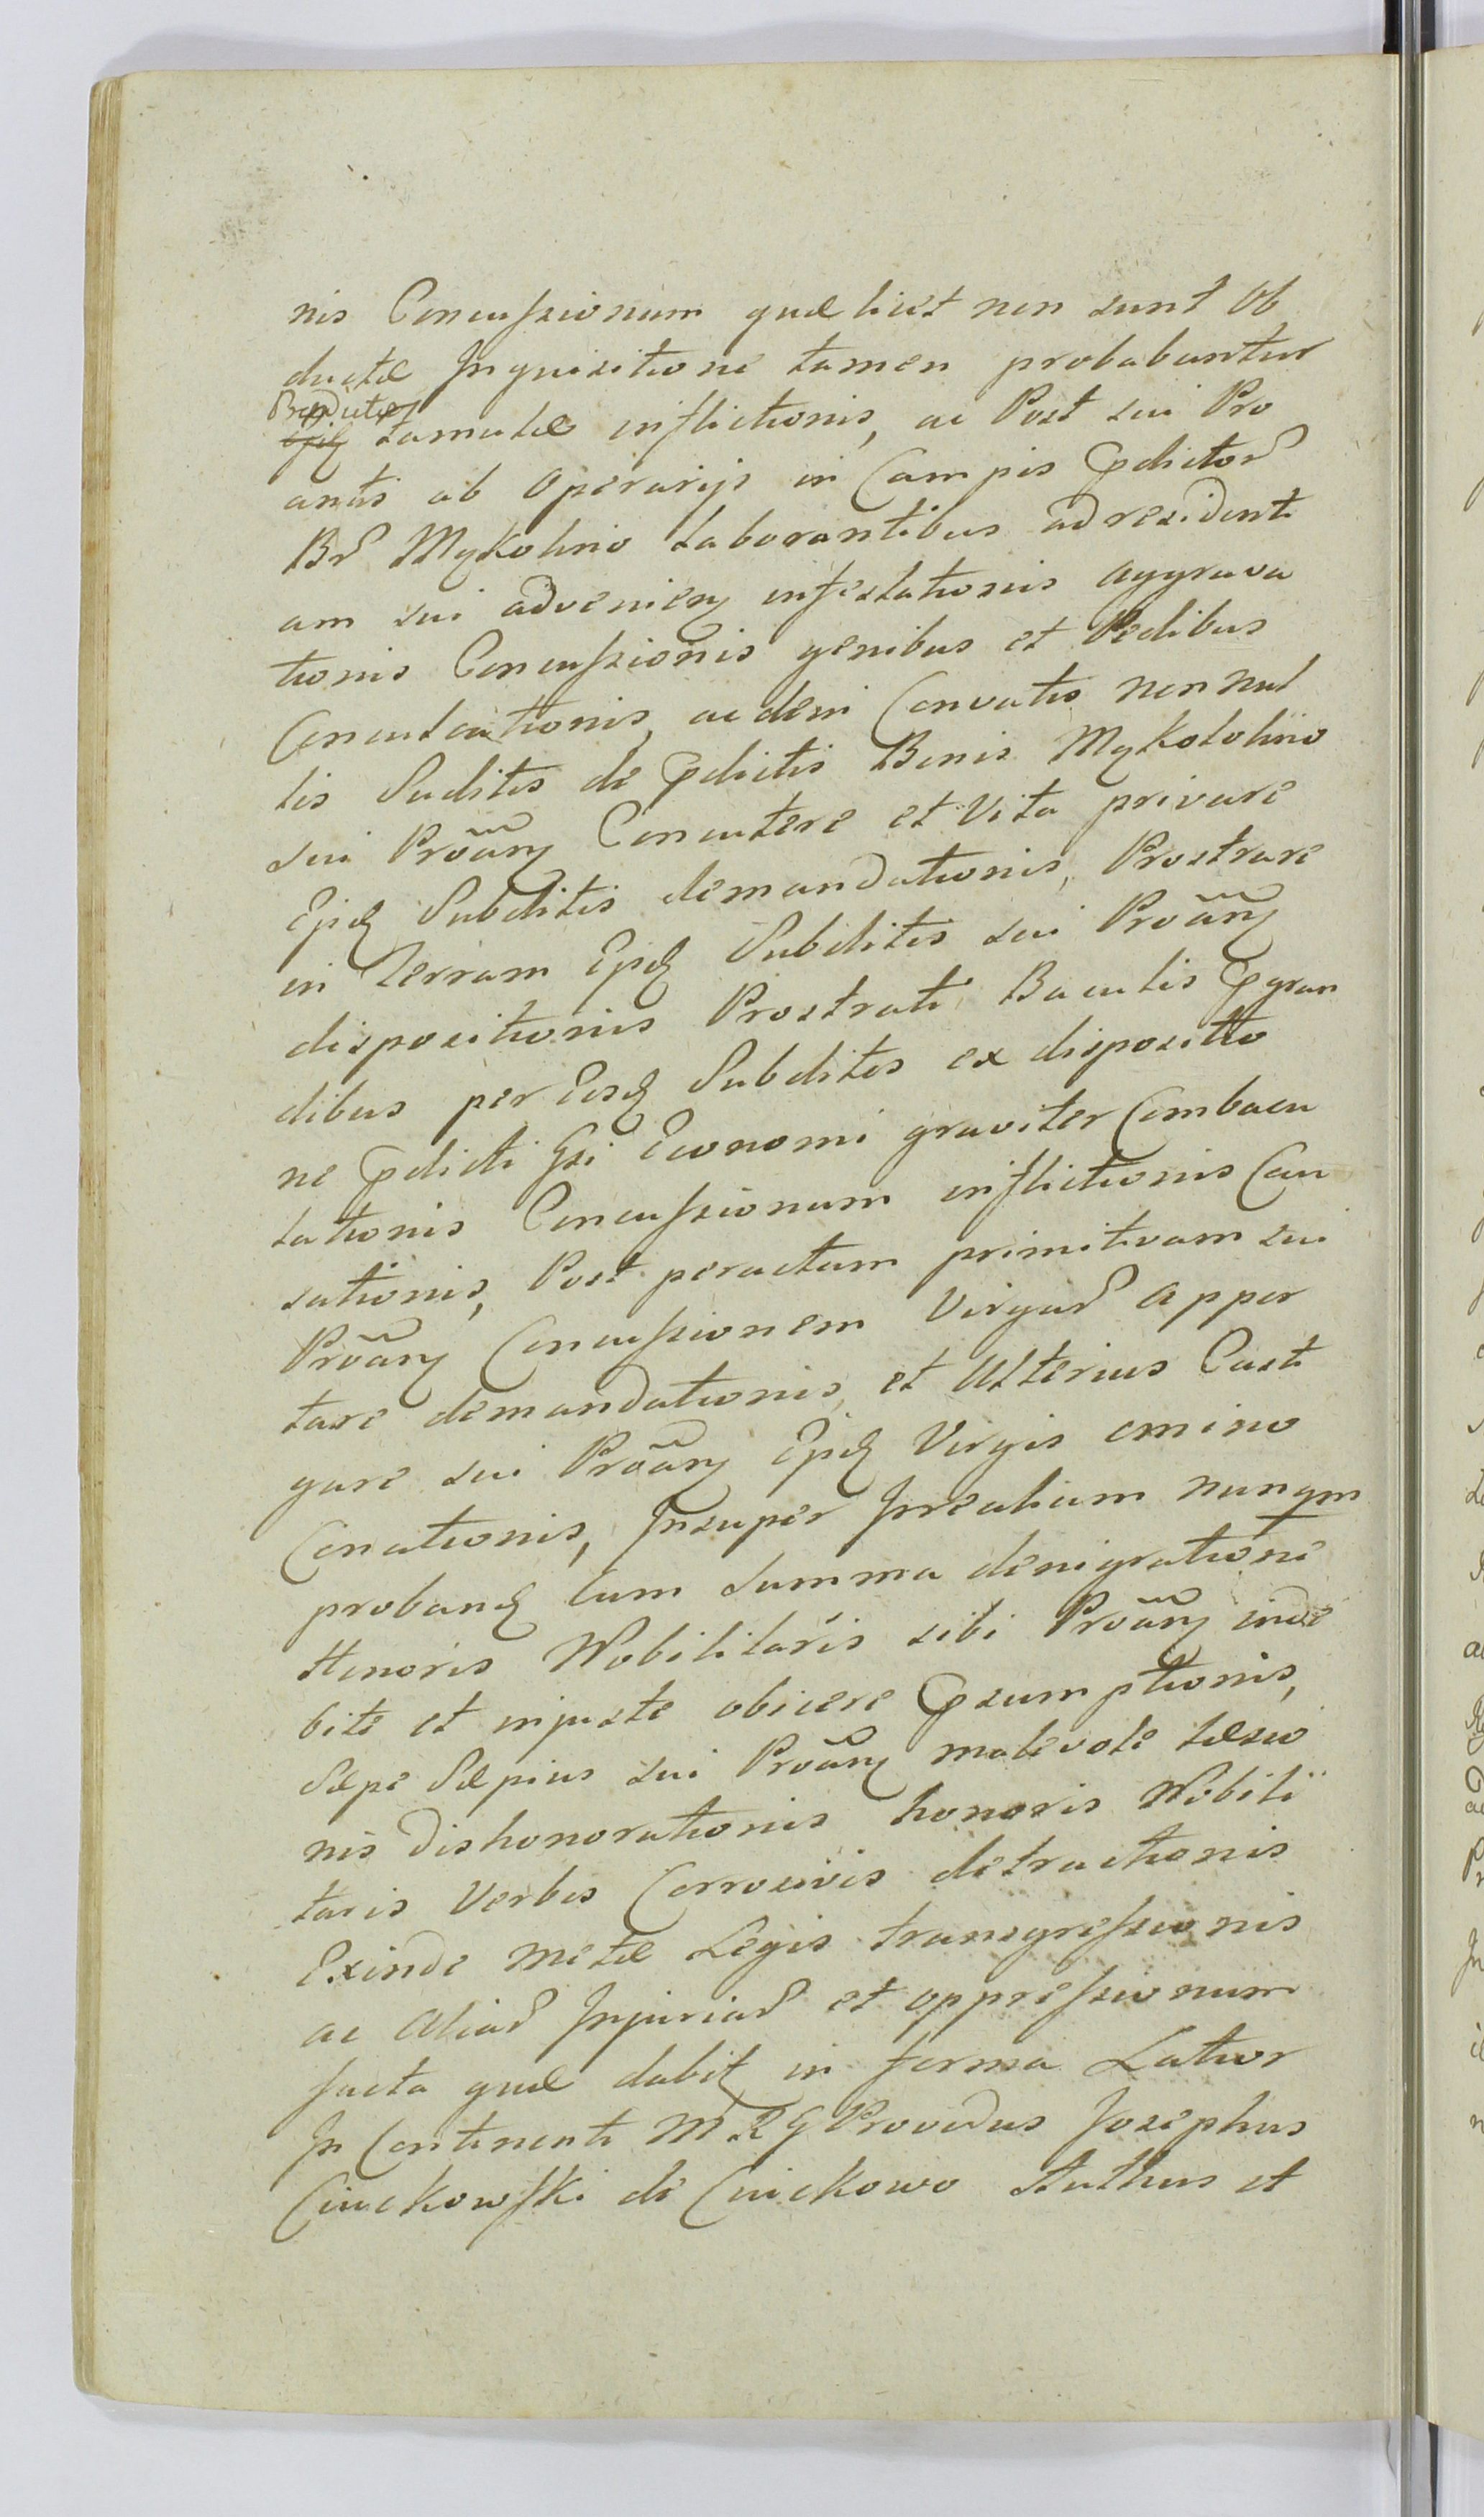 nis Concussionum quæ licet non sunt Ob
ductæ Inquisitione tamen probabuntur
tamutæ inflictionis, ac Post sui Pro
antis ab Operarijs in Campis Pdictor
Br Mykolino Laborantibus ad residenti
am sui advenien infestationis aggrava
tionis Concussionis genibus et Pedibus
Conculcationis, ac dein Convatis nonnul
lis Suditis de Pdictis Bonis Mykololino
sui Proan Concutere et Vita privare
Ejsd Subditis demandationis, Prostrare
in Terram Ejsd Subditis sui Proan
dispositionis Prostrati Baculis Pgran
dibus per Eosd Subditos ex dispositio
ne Pdicti Gsi Economi graviter Combacu
lationis Concussionum inflictionis Cau
sationis, Post peractam primitivam sui
Proan Concussionem Virgar Appor
tare demandationis, et Ulterius Casti
gare sui Proan Ejsd Virgis omino
Conationis, Insuper Irrealium nunqm
proband cum Summa denigratione
Honoris Nobilitaris sibi Proan inde
bite et injuste obicere Psumptionis,
Sæpe Sæpius sui Proan malevole læsio
nis dishonorationis honoris Nobili
taris Verbis Corrosivis detractionis
Exinde Metæ Legis transgressionis
ac Aliar Injuriar et oppressionum
facta quæ dabit in forma Latior
In Continenti M R G Providus Josephus
Ciuckowski de Ciuckowo Authus et